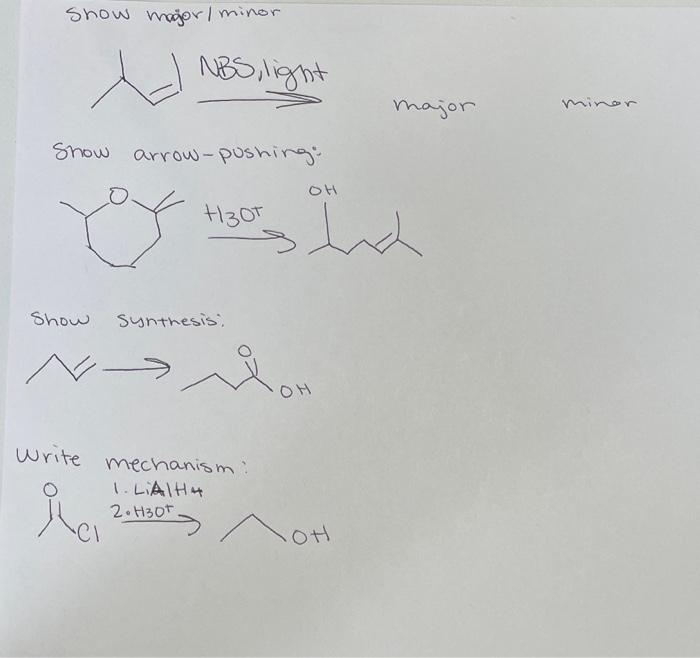 Show major/minor
NBS, light
major minor
Show arrow-pushing:
O
H3O+
OH
Show synthesis:
O
OH
Write mechanism:
O
1. LiAlH4
2. H3O+
Cl
OH